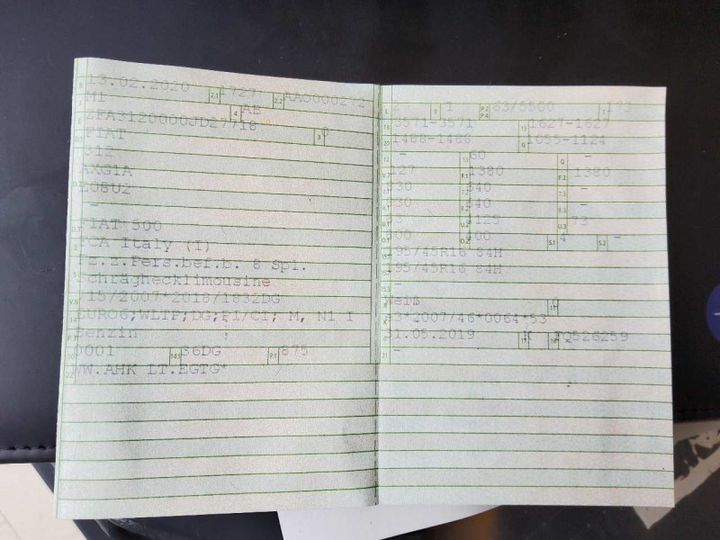 13.02.2020 1727 AAS0000272
M1 AB
ZFA3120000JD27718 0
FIAT
312
AXG1A
Z08U2
-
FIAT 500
FCA Italy (I)
Fz.z.Pers.bef.b. 8 Spl.
Schräghecklimousine
715/2007*2018/1832DG
EURO6;WLTP;DG;PI/CI; M, N1 I
Benzin
0001 36DG 875
WW.AHK LT.EGTG*
2 1 63/5500 173
3571-3571 1627-1627
1488-1488 -1124
- 60 -
127 1380 1380
830 640 -
830 640 -
1125 73
400 4 -
195/45R16 84H
195/45R16 84H
-
weiß
*2007/46*0064*53
31.05.2019 K
-